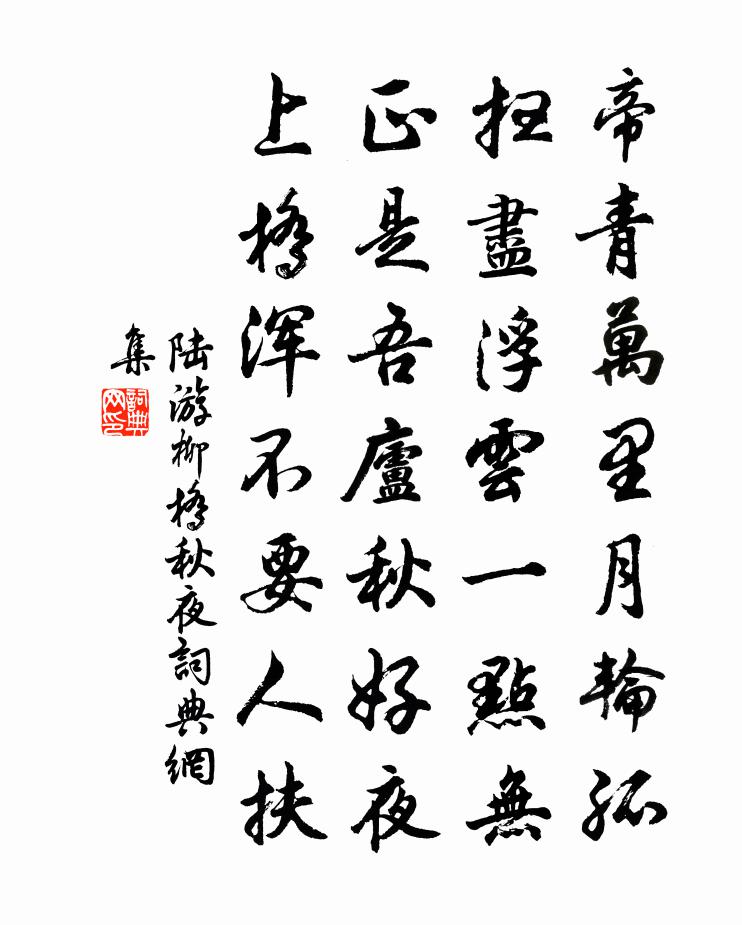 帝青萬里月輪孤
扫盡浮雲一點無
正是吾廬秋好夜
上橋渾不要人扶
陸游柳橋秋夜詞典網
集
詞典
网印